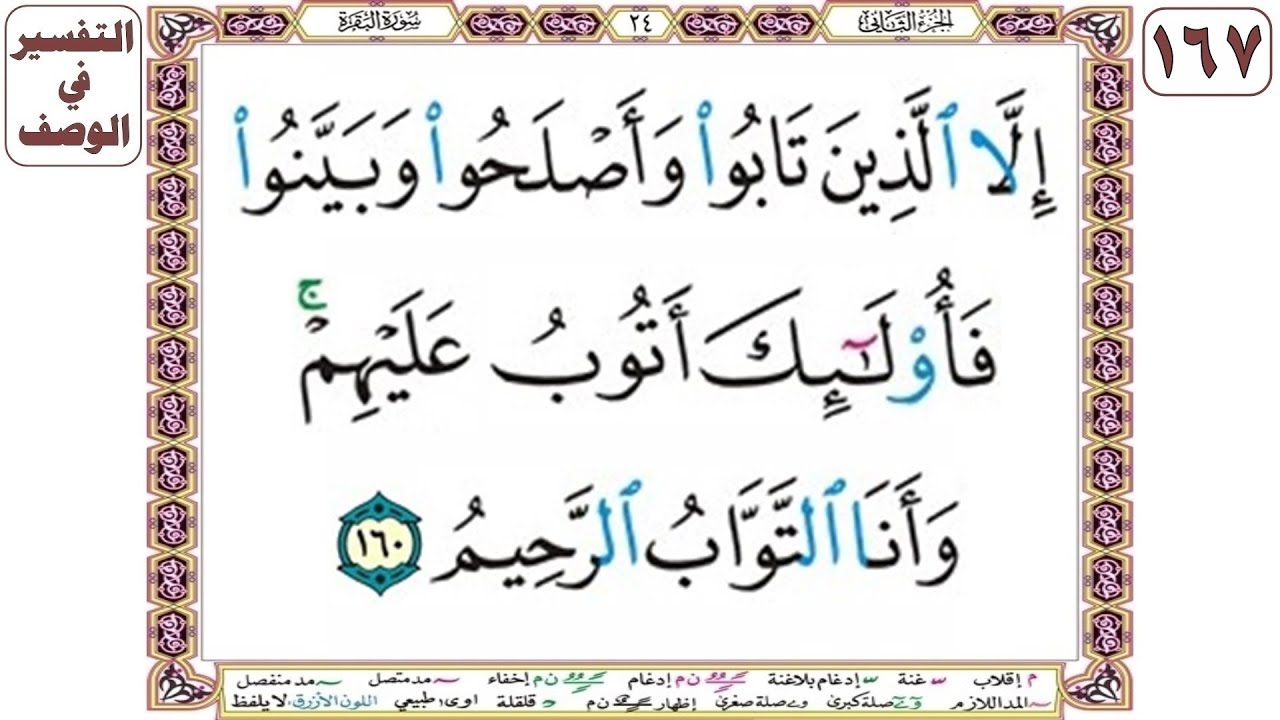 التفسير
في
الوصف
١٦٧
الجزء الثاني
٢٤
سورة البقرة
إِلَّا ٱلَّذِينَ تَابُوا۟ وَأَصْلَحُوا۟ وَبَيَّنُوا۟
فَأُو۟لَـٰٓئِكَ أَتُوبُ عَلَيْهِمْ ۚ
وَأَنَا ٱلتَّوَّابُ ٱلرَّحِيمُ ١٦٠
م إقلاب س غنة س إدغام بلاغنة ن م إدغام ن م إخفاء مد متصل مد منفصل
المد اللازم صلة كبرى صلة صغرى إظهار ن م قلقلة اوى طبيعي اللون الأزرق لا يلفظ